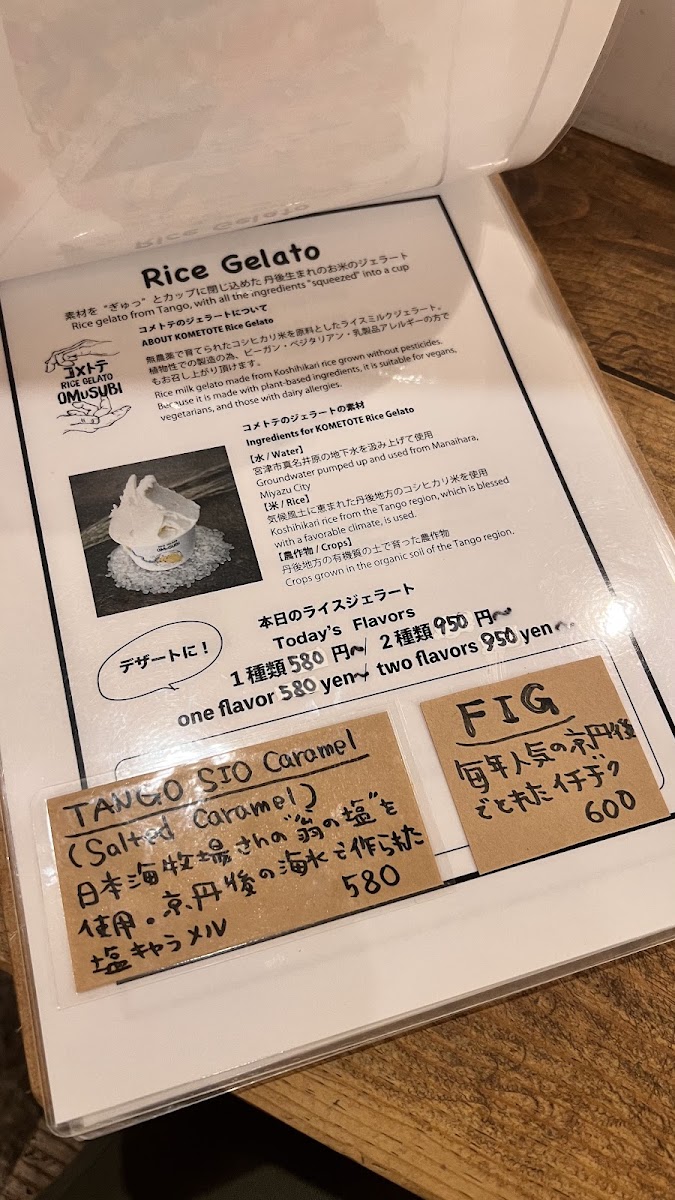 Rice Gelato
素材を "ぎゅっ" とカップに閉じ込めた 丹後生まれのお米のジェラート
Rice gelato from Tango, with all the ingredients "squeezed" into a cup
コメトテ
RICE GELATO
OMUSUBI
コメトテのジェラートについて
ABOUT KOMETOTE Rice Gelato
無農薬で育てられたコシヒカリ米を原料としたライスミルクジェラート。
植物性での製造の為、ビーガン・ベジタリアン・乳製品アレルギーの方で
もお召し上がり頂けます。
Rice milk gelato made from Koshihikari rice grown without pesticides.
Because it is made with plant-based ingredients, it is suitable for vegans,
vegetarians, and those with dairy allergies.
コメトテのジェラートの素材
Ingredients for KOMETOTE Rice Gelato
【水 / Water】
宮津市真名井原の地下水を汲み上げて使用
Groundwater pumped up and used from Manaihara,
Miyazu City
【米 / Rice】
気候風土に恵まれた丹後地方のコシヒカリ米を使用
Koshihikari rice from the Tango region, which is blessed
with a favorable climate, is used.
【農作物 / Crops】
丹後地方の有機質の土で育った農作物
Crops grown in the organic soil of the Tango region.
デザートに！
本日のライスジェラート
Today's Flavors
1種類 580 円〜 / 2種類 950 円〜
one flavor 580 yen〜 two flavors 950 yen〜
TANGO SIO Caramel
(Salted Caramel)
日本海牧場さんの"翁の塩"を
使用。京丹後の海水で作られた
塩キャラメル
580
FIG
毎年人気の京丹後
でとれたイチヂク
600